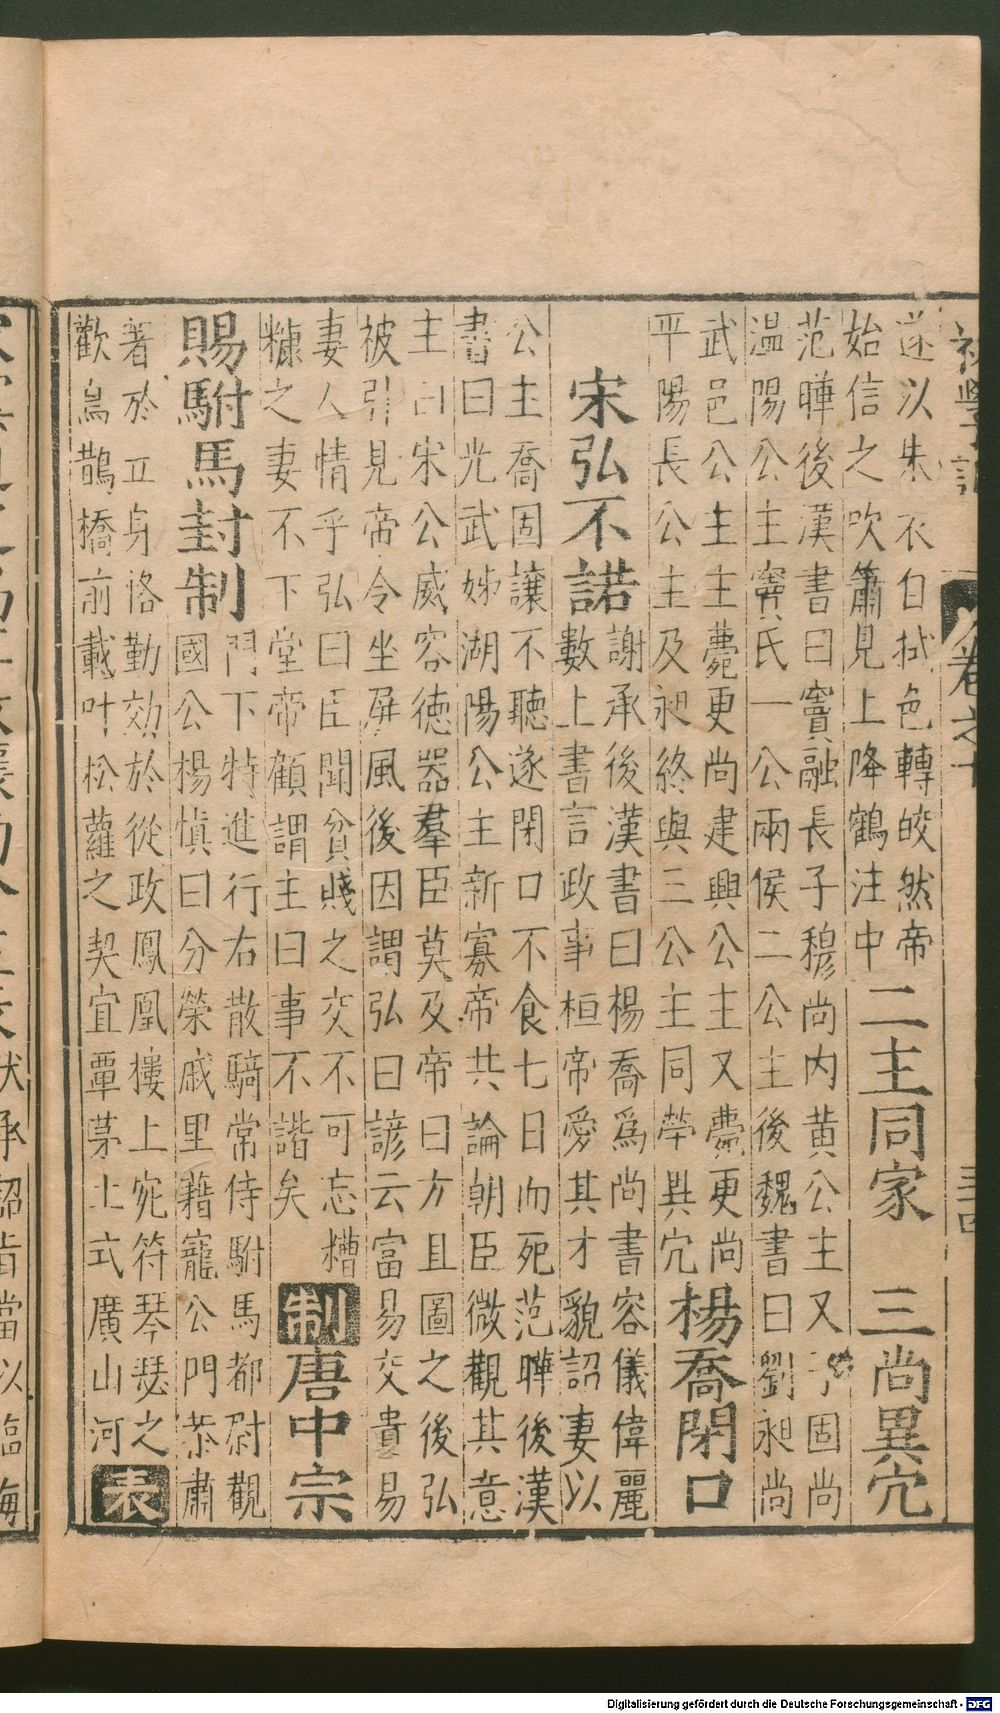 初學記 卷之十 三四
遂以朱衣白拭色轉皎然帝
始信之吹簫見上降鶴注中
二主同家 三尚異穴
范曄後漢書曰竇融長子穆尚内黄公主又子固尚
温陽公主竇氏一公兩侯二公主後魏書曰劉昶尚
武邑公主主薨更尚建興公主又薨更尚
平陽長公主及昶終與三公主同塋異穴
楊喬閉口
宋弘不諾
謝承後漢書曰楊喬爲尚書容儀偉麗
數上書言政事桓帝愛其才貌詔妻以
公主喬固讓不聽遂閉口不食七日而死范曄後漢
書曰光武姊湖陽公主新寡帝共論朝臣微觀其意
主曰宋公威容德器羣臣莫及帝曰方且圖之後弘
被引見帝令坐屏風後因謂弘曰諺云富易交貴易
妻人情乎弘曰臣聞貧賤之交不可忘糟
糠之妻不下堂帝顧謂主曰事不諧矣
制唐中宗
賜駙馬封制
門下特進行右散騎常侍駙馬都尉觀
國公楊慎曰分榮戚里藉寵公門恭肅
著於立身恪勤効於從政鳳凰樓上宛符琴瑟之
歡烏鵲橋前載叶松蘿之契宜覃茅土式廣山河
表
Digitalisierung gefördert durch die Deutsche Forschungsgemeinschaft - DFG